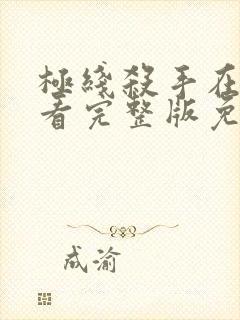 极线殺手在
看完整版免
成渝